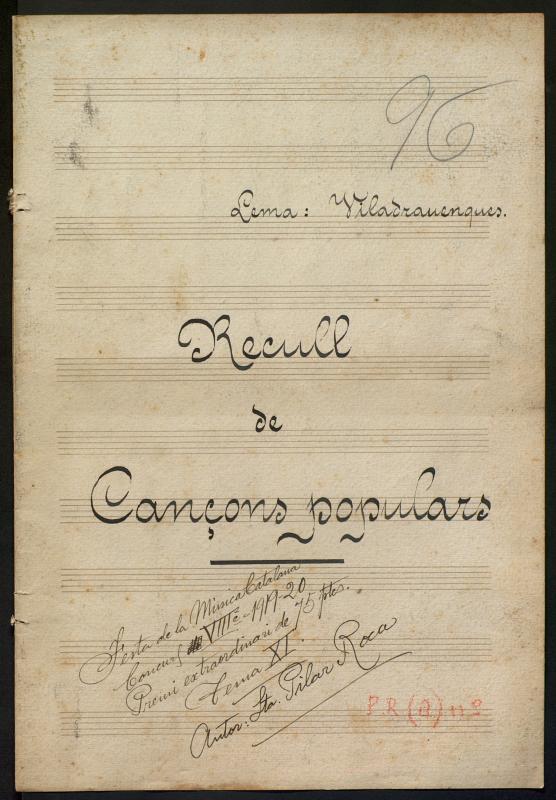 96
Lema: Viladrauenques.
Recull
de
Cançons populars
Festa de la Música Catalana
Concurs VIIIè - 1919-20
Premi extraordinari de 75 ptes.
Tema XI.
Autor: Sta. Pilar Roca
P.R (a) 11º